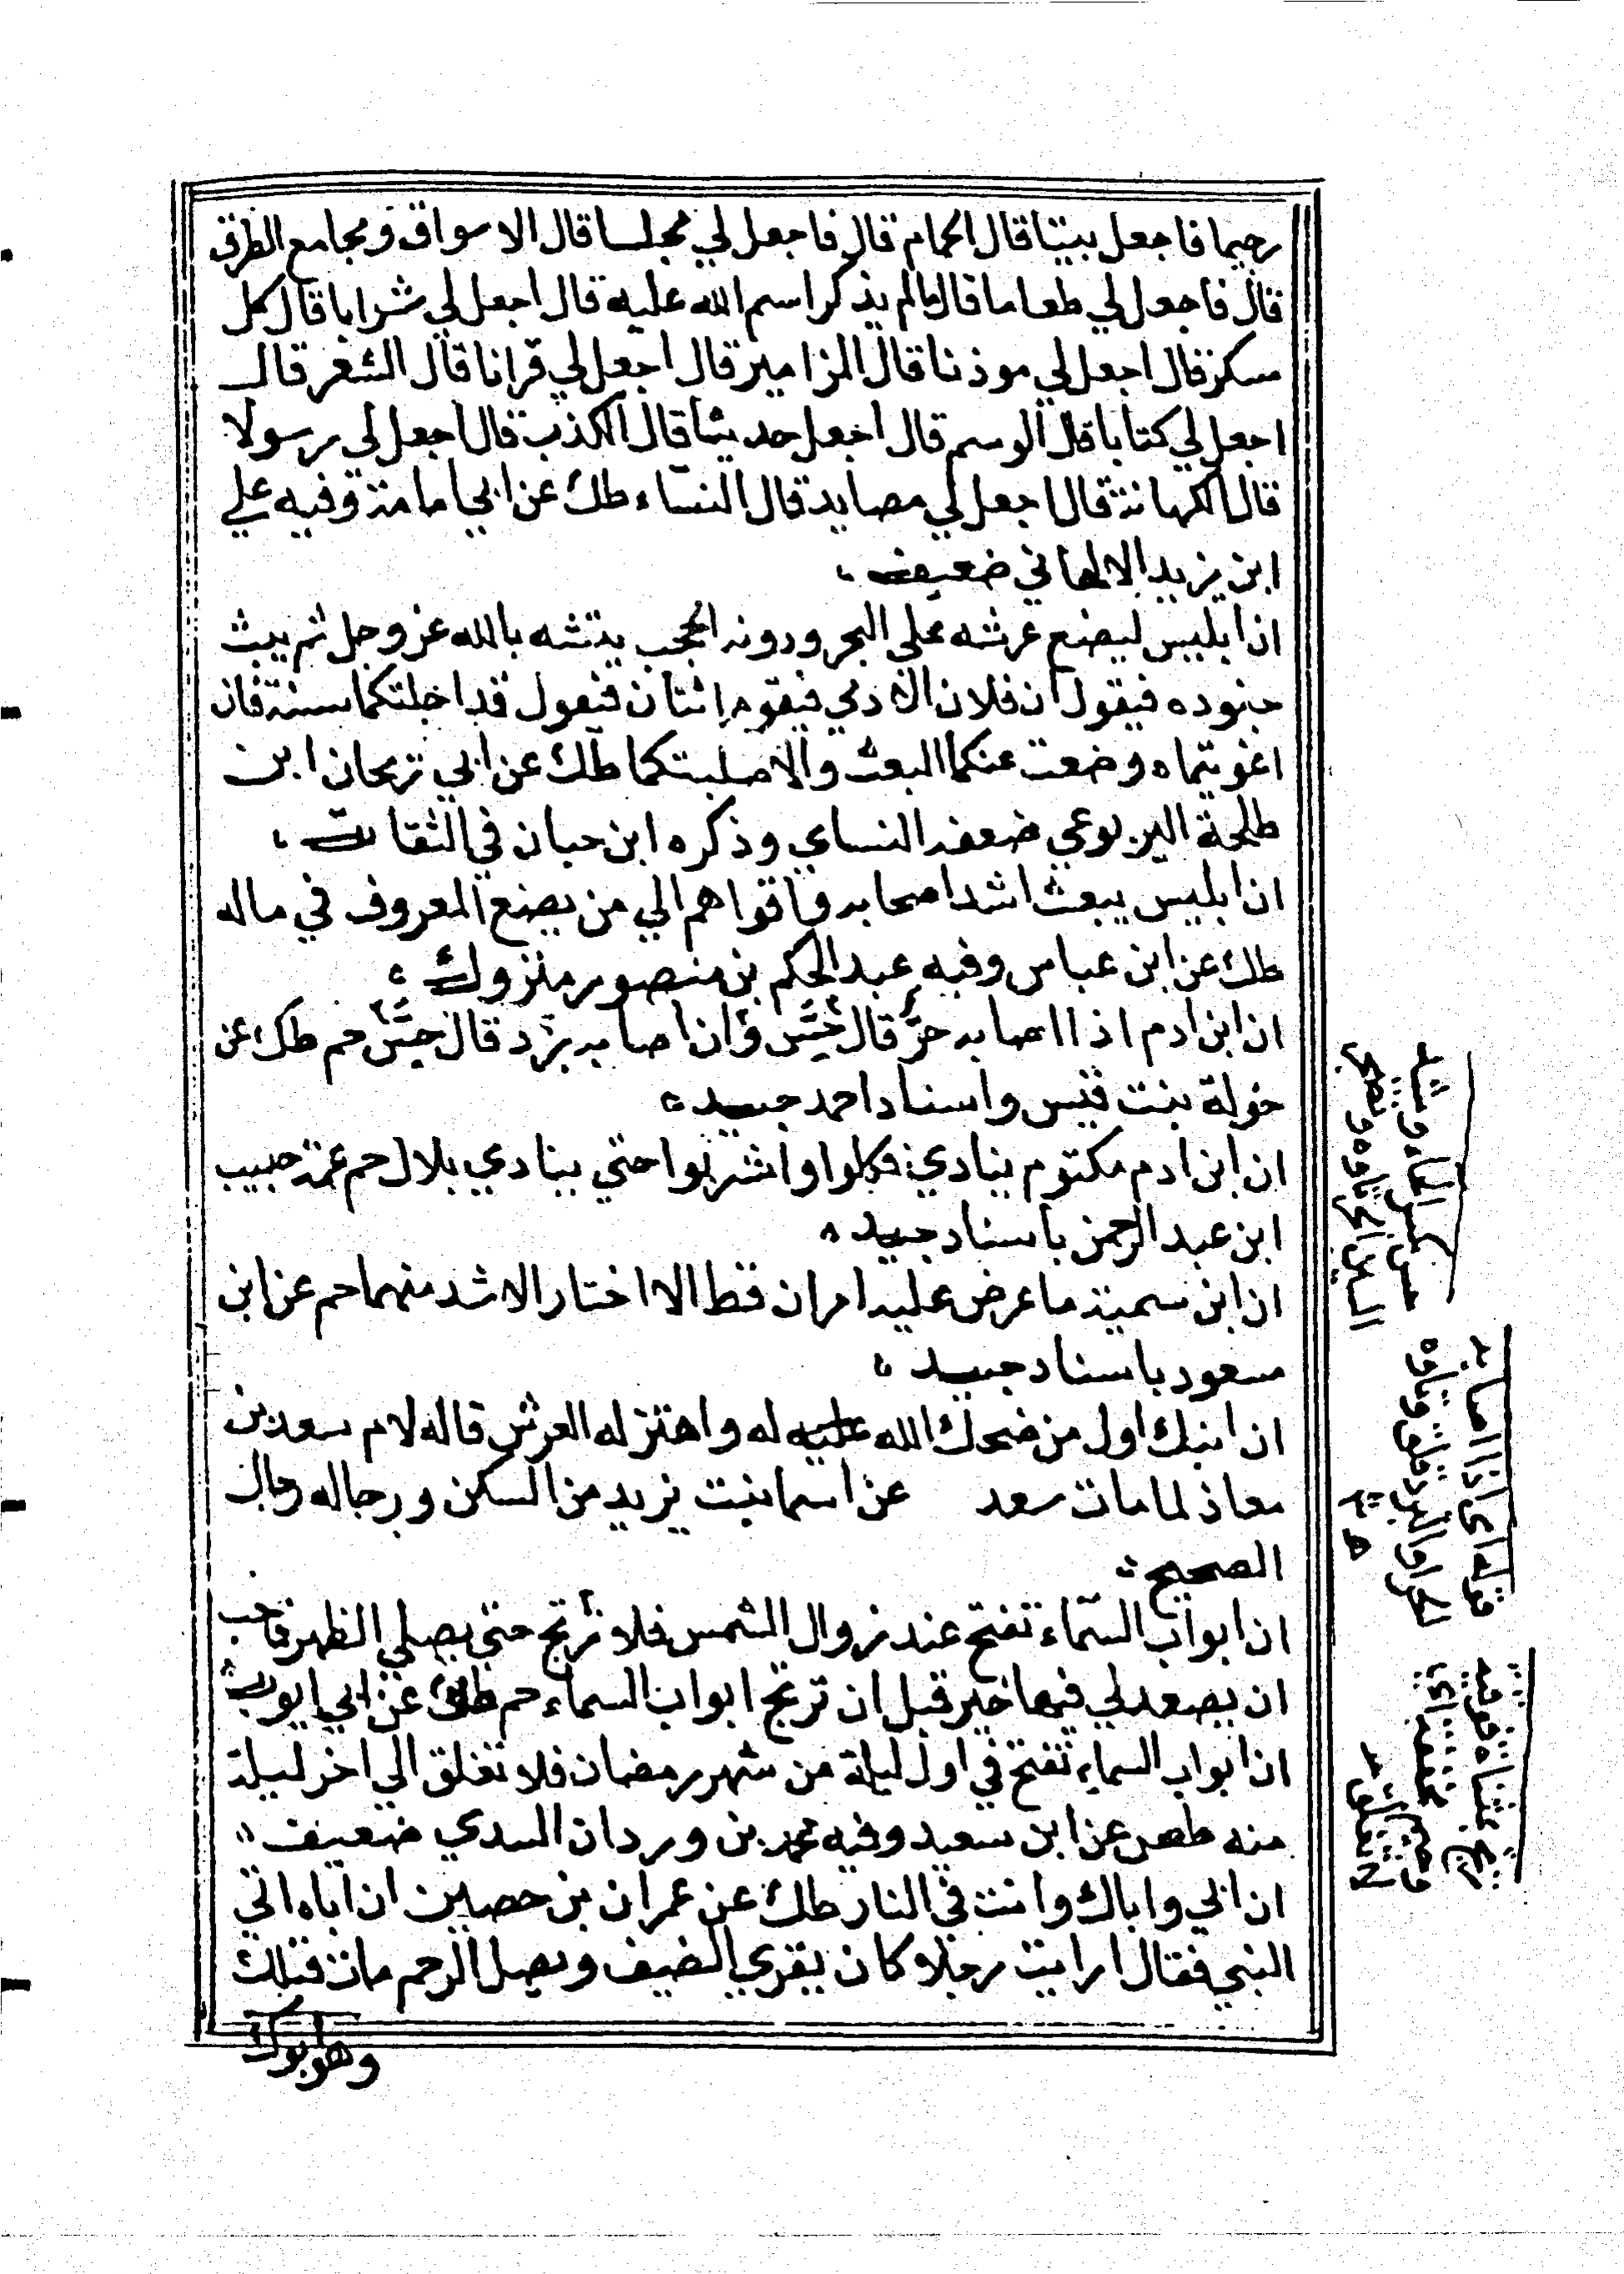 رجيما فاجعل بيتا قال الحمام قال فاجعل لي مجلسا قال الاسواق ومجامع الطرق
قال فاجعل لي طعاما قال ما لم يذكر اسم الله عليه قال اجعل لي شرابا قال كل
مسكر قال اجعل لي موذنا قال المزامير قال اجعل لي قرانا قال الشعر قال
اجعل لي كتابا قال الوسم قال اجعل حديثا قال الكذب قال اجعل لي رسولا
قال الكهانة قال اجعل لي مصايد قال النساء طك عن ابي امامة وفيه علي
ابن يزيد الالهاني ضعيف
ان ابليس ليضع عرشه على البحر ودونه الحجب يتشه بالله عز وجل ثم يبث
جنوده فيقول ان فلان الادمي فيقوم اثنان فيقول قد اجلتكما سنة فان
اغويتماه وضعت عنكما البعث والا صلبتكما طك عن ابي ريحان ابن
طلحة اليربوعي ضعفه النساي وذكره ابن حبان في الثقات
ان ابليس يبعث اشد اصحابه واقواهم الي من يصنع المعروف في ماله
طك عن ابن عباس وفيه عبد الحكم بن منصور متروك
ان ابن ادم اذا اصابه حر قال حس وان اصابه برد قال حس حم طك عن
خولة بنت قيس واسناد احمد جيد
ان ابن ادم مكتوم ينادي فكلوا واشربوا حتي ينادي بلال حم عمة حبيب
ابن عبد الرحمن باسناد جيد
ان ابن سمية ما عرض عليه امران قط الا اختار الاشد منهما حم عن ابن
مسعود باسناد جيد
ان ابنك اول من ضحك الله عليه له واهتز له العرش قاله لام سعد بن
معاذ لما مات سعد عن اسما بنت يزيد من السكن ورجاله رجال
الصحيح
ان ابواب السماء تفتح عند زوال الشمس فلا ترتج حتي يصلي الظهر فاحب
ان يصعد لي فيها خير قبل ان ترتج ابواب السماء حم طك عن ابي ايوب
ان ابواب السماء تفتح في اول ليلة من شهر رمضان فلا تغلق الي اخر ليلة
منه طص عن ابن سعيد وفيه محمد بن وردان السدي ضعيف
ان ابي واباك وانت في النار طك عن عمران بن حصين ان اباه اتي
النبي فقال ارايت رجلا كان يقري الضيف ويصل الرحم مات قبلك
وهو ابوك
حس بكسر الحاء وتشديد
قوله اي اذا اصابه
الحر او البرد قلق وتاوه